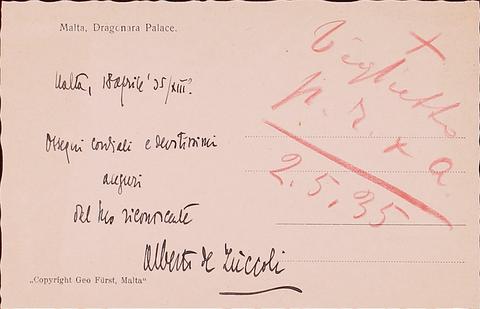 Malta, Dragonara Palace.
Malta, 18 aprile '35/XIII?
Ossequi cordiali e devotissimi
auguri
del suo riconoscente
Alberto de Zùccoli
„Copyright Geo Fürst, Malta"
+
Biglietto
p. r. x a.
2.5.35